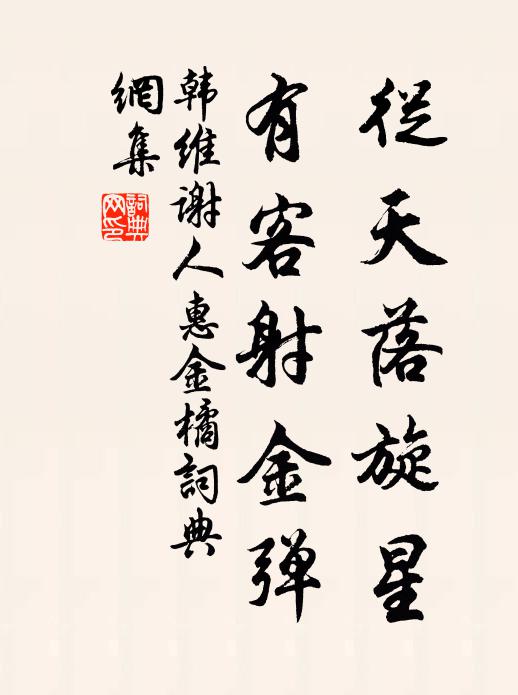 從天落旋星
有客射金弹
韩维谢人惠金橘詞典
網集
詞典
网印